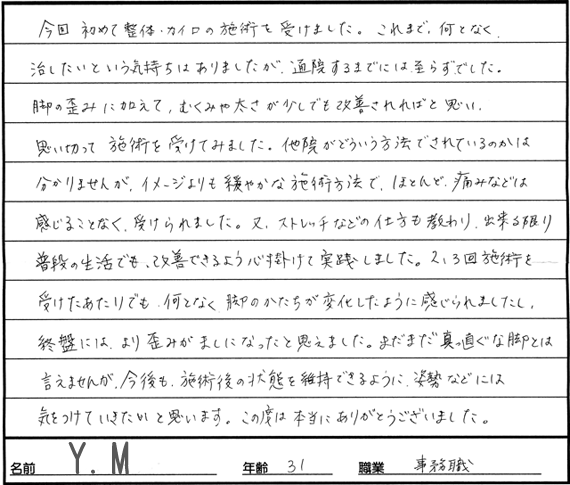 今回 初めて整体・カイロの施術を受けました。これまで、何となく、
治したいという気持ちはありましたが、通院するまでには至らずでした。
脚の歪みに加えて、むくみや太さが少しでも改善されればと思い、
思い切って施術を受けてみました。他院がどういう方法でされているのかは
分かりませんが、イメージよりも緩やかな施術方法で、ほとんど、痛みなどは
感じることなく、受けられました。又、ストレッチなどの仕方も教わり、出来る限り
普段の生活でも、改善できるよう心掛けて実践しました。2,3回施術を
受けたあたりでも、何となく脚のかたちが変化したように感じられましたし、
終盤には、より歪みがましになったと思えました。まだまだ真っ直ぐな脚とは
言えませんが、今後も、施術後の状態を維持できるように、姿勢などには
気をつけていきたいと思います。この度は本当にありがとうございました。
名前 Y.M 年齢 31 職業 事務職